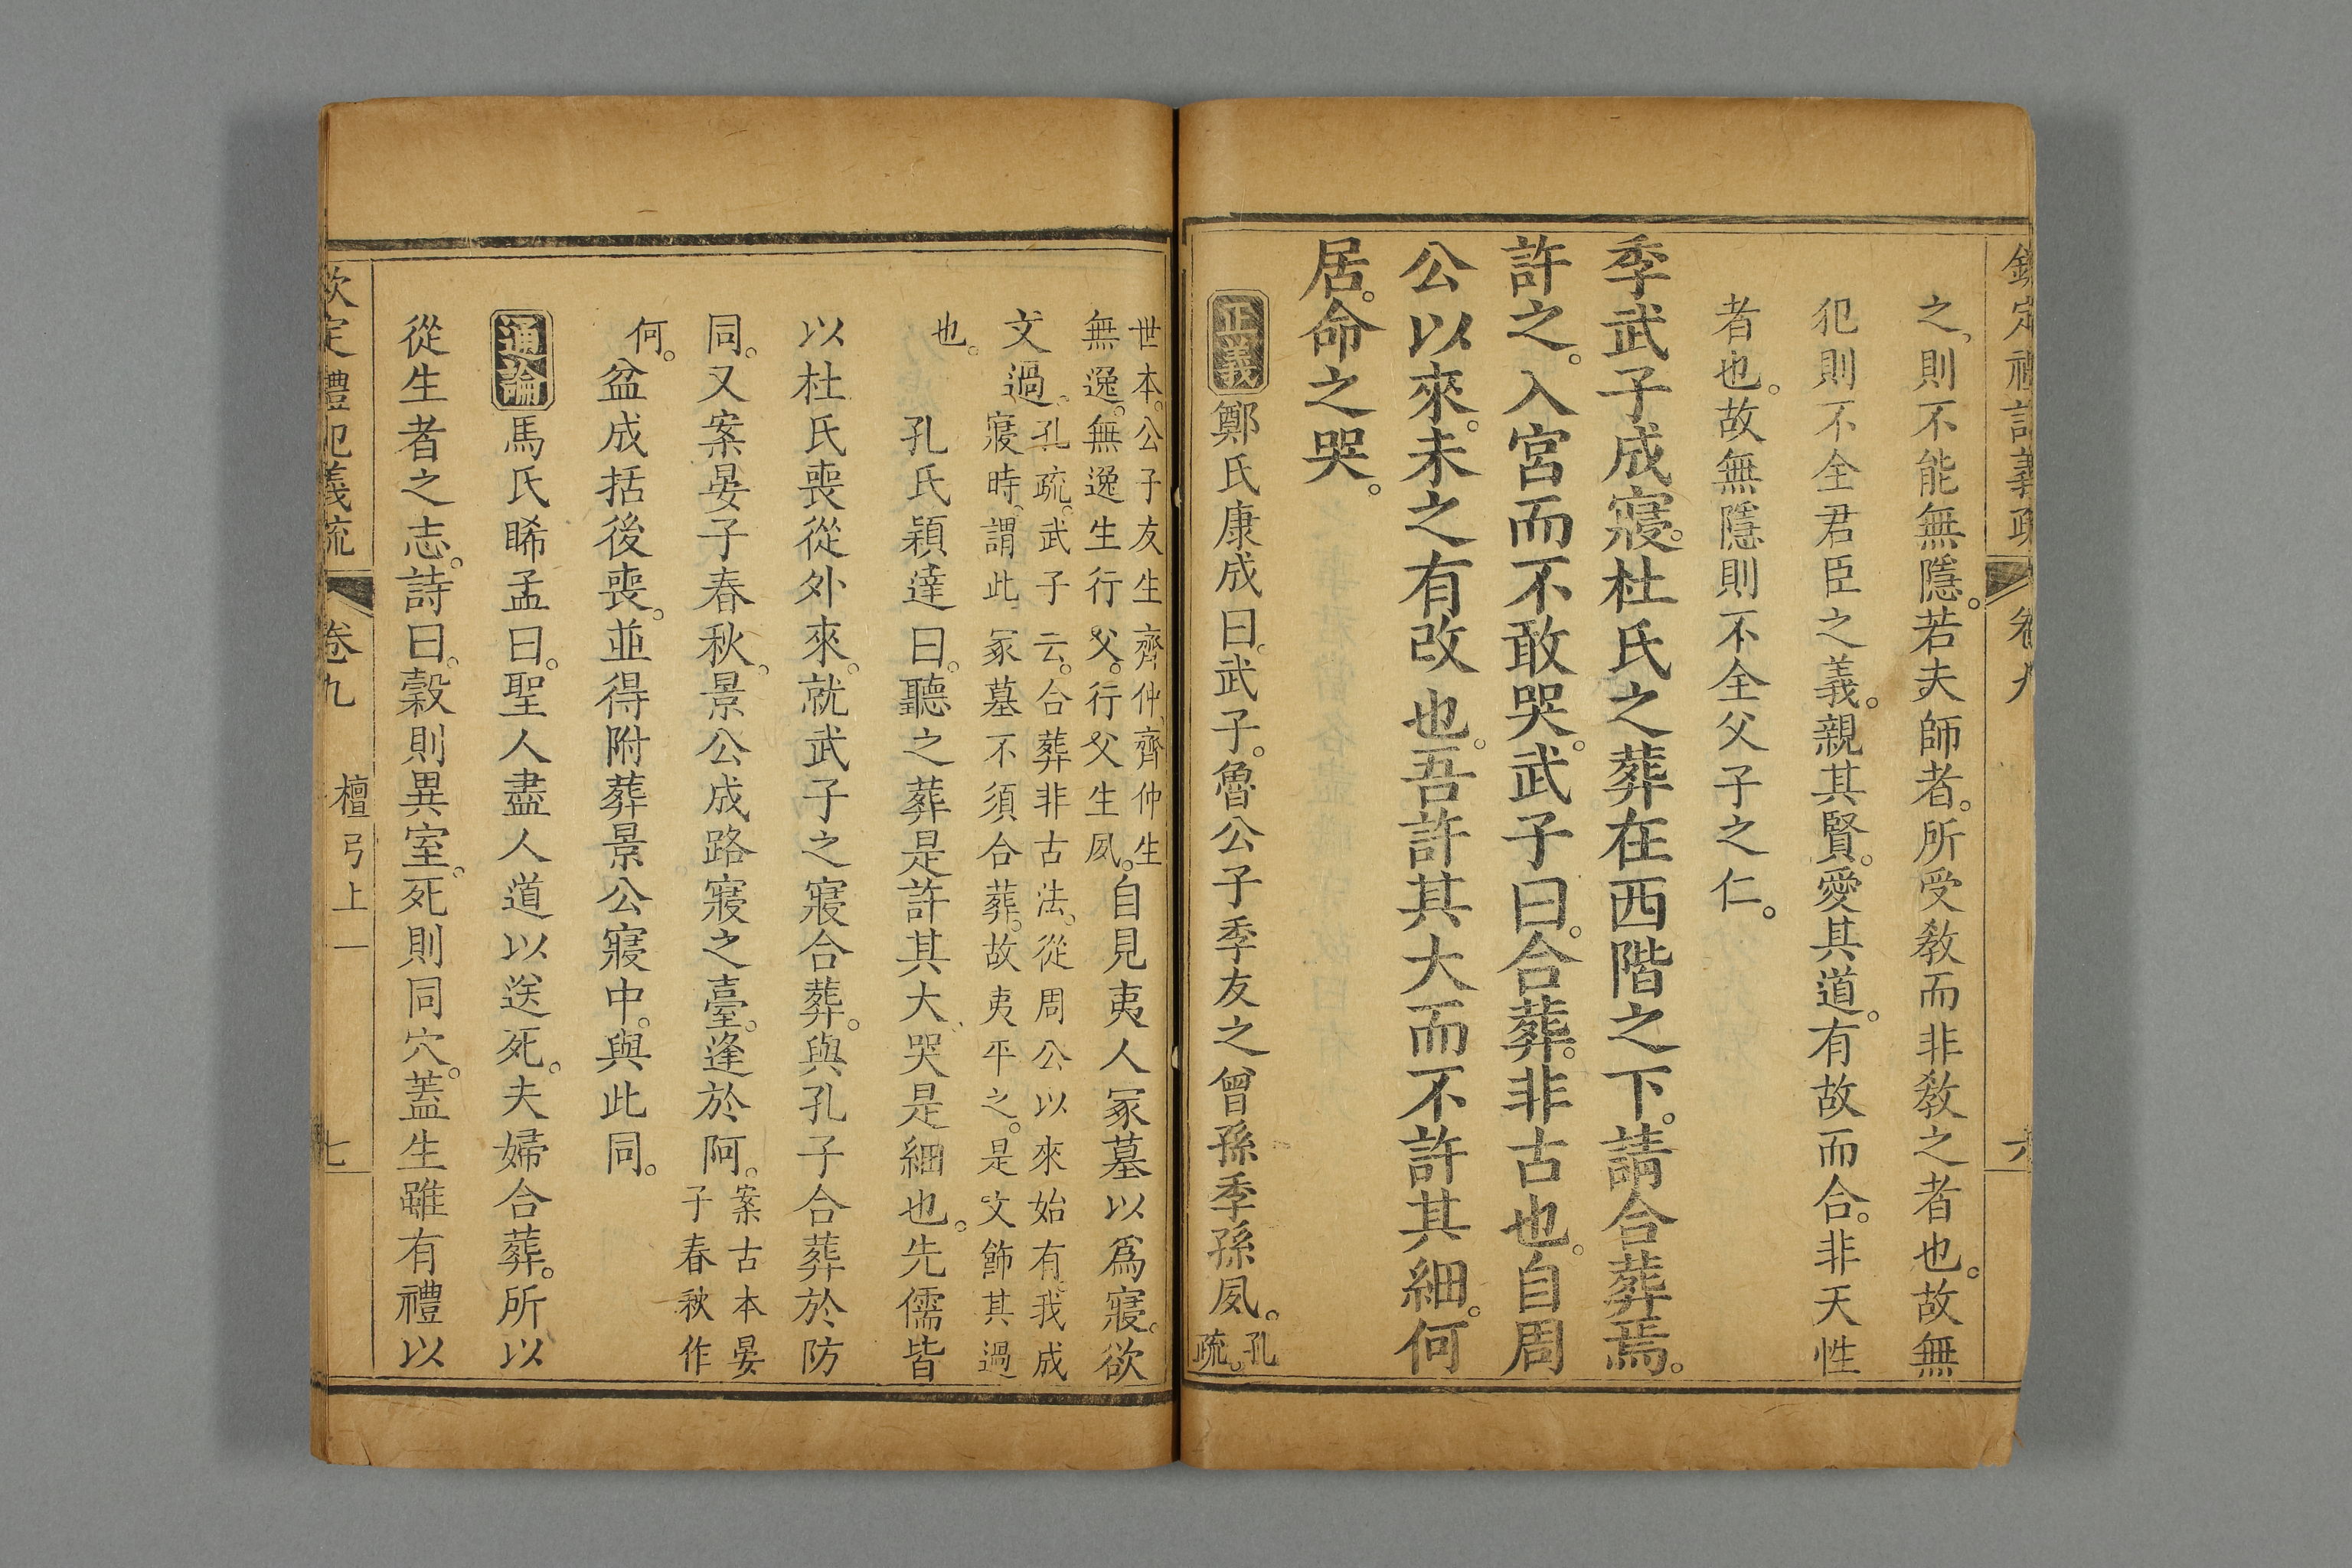 欽定禮記義疏 卷九 六
之則不能無隱。若夫師者。所受教而非教之者也。故無
犯則不全君臣之義。親其賢。愛其道。有故而合。非天性
者也。故無隱則不全父子之仁。
季武子成寢。杜氏之葬在西階之下。請合葬焉。
許之。入宮而不敢哭。武子曰。合葬。非古也。自周
公以來。未之有改也。吾許其大而不許其細。何
居。命之哭。
正義 鄭氏康成曰。武子。魯公子季友之曾孫季孫夙。孔
疏。
世本。公子友生齊仲。齊仲生
無逸。無逸生行父。行父生夙。自見夷人冢墓以爲寢。欲
文過。孔疏。武子云。合葬非古法。從周公以來始有。我成
寢時。謂此冢墓不須合葬。故夷平之。是文飾其過
也。
孔氏穎達曰。聽之葬是許其大、哭是細也。先儒皆
以杜氏喪從外來。就武子之寢合葬。與孔子合葬於防
同。又案晏子春秋、景公成路寢之臺。逢於阿。案古本晏
子春秋作
何。盆成括後喪。並得附葬景公寢中。與此同。
通論 馬氏睎孟曰。聖人盡人道以送死。夫婦合葬。所以
從生者之志。詩曰。穀則異室。死則同穴。蓋生雖有禮以
欽定禮記義疏 卷九 檀弓上一 七